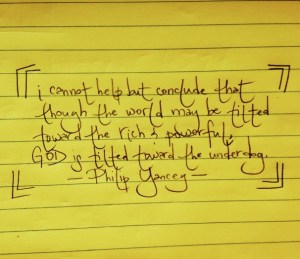 i cannot help but conclude that
though the world may be tilted
toward the rich & powerful,
GOD is tilted toward the underdog.
- Philip Yancey -